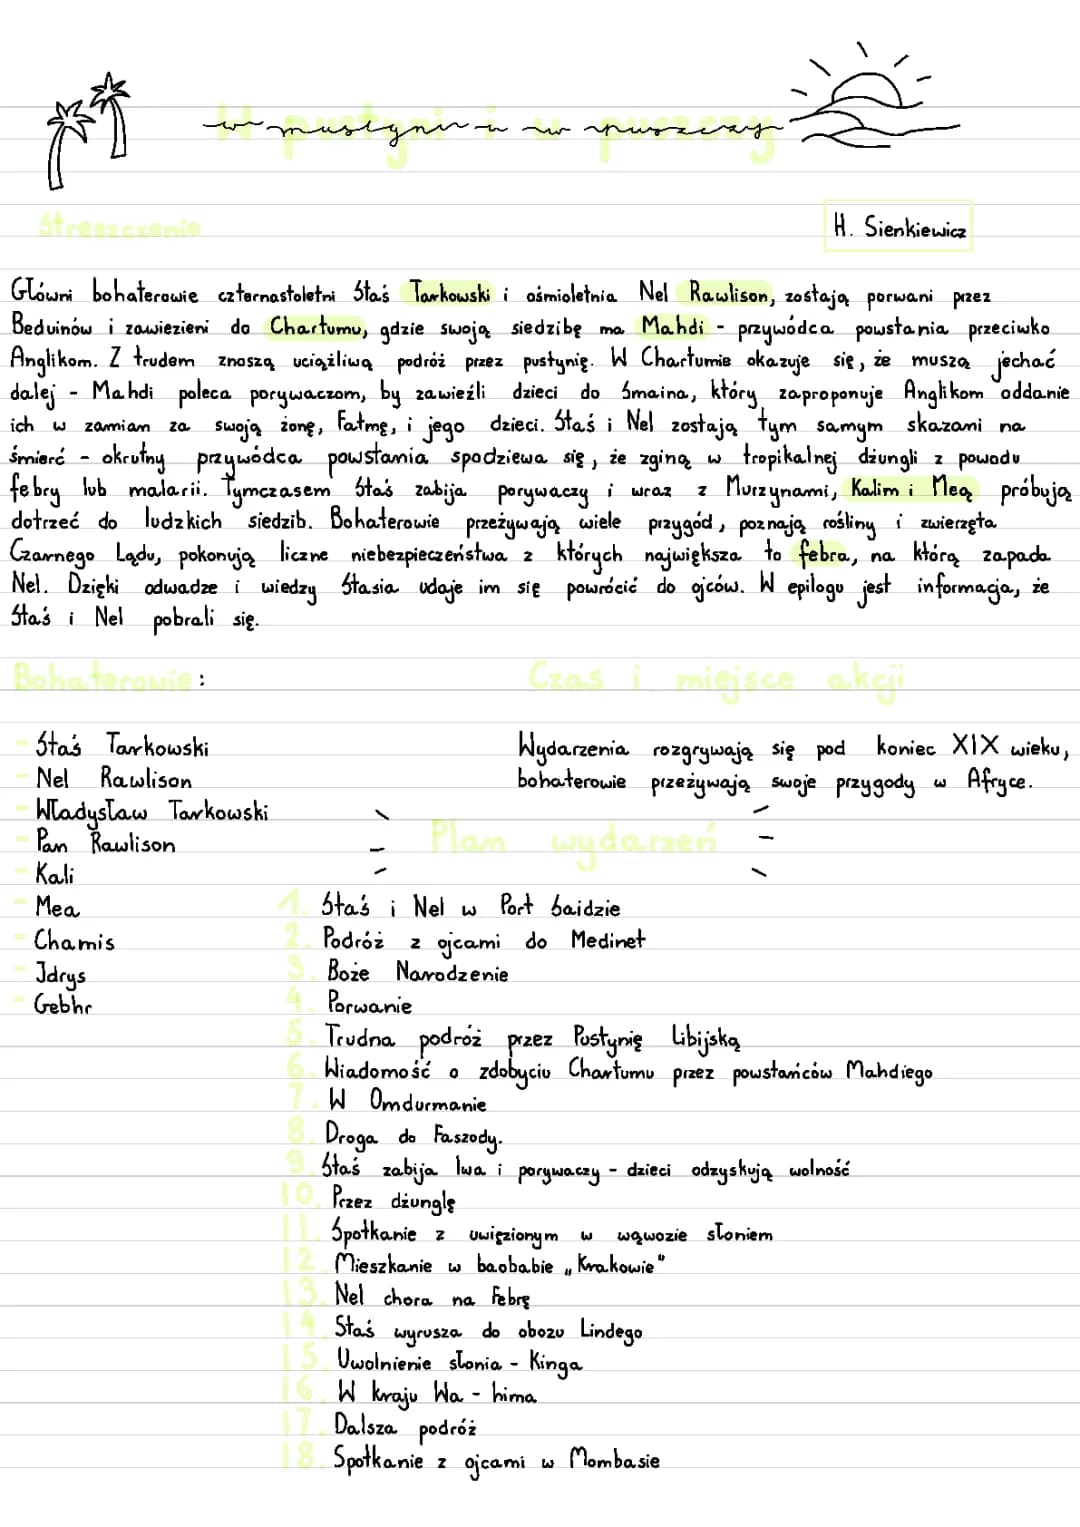 W pustyni i w puszczy
Streszczenie
H. Sienkiewicz
Główni bohaterowie czternastoletni Staś Tarkowski i ośmioletnia Nel Rawlison, zostają porwani przez
Beduinów i zawiezieni do Chartumu, gdzie swoją siedzibę ma Mahdi - przywódca powstania przeciwko
Anglikom. Z trudem znoszą uciążliwą podróż przez pustynię. W Chartumie okazuje się, że muszą jechać
dalej - Mahdi poleca porywaczom, by zawieźli dzieci do Smaina, który zaproponuje Anglikom oddanie
ich w zamian za swoją żonę, Fatmę, i jego dzieci. Staś i Nel zostają tym samym skazani na
śmierć - okrutny przywódca powstania spodziewa się, że zginą w tropikalnej dżungli z powodu
febry lub malarii. Tymczasem Staś zabija porywaczy i wraz z Murzynami, Kalim i Meą próbują
dotrzeć do ludzkich siedzib. Bohaterowie przeżywają wiele przygód, poznają rośliny i zwierzęta
Czarnego Lądu, pokonują liczne niebezpieczeństwa z których największa to febra, na którą zapada
Nel. Dzięki odwadze i wiedzy Stasia udaje im się powrócić do ojców. W epilogu jest informacja, że
Staś i Nel pobrali się.
Bohaterowie:
- Staś Tarkowski
- Nel Rawlison
- Władysław Tarkowski
- Pan Rawlison
- Kali
- Mea
- Chamis
- Idrys
- Gebhr
Czas i miejsce akcji
Wydarzenia rozgrywają się pod koniec XIX wieku,
bohaterowie przeżywają swoje przygody w Afryce.
Plan wydarzeń
1. Staś i Nel w Port Saidzie
2. Podróż z ojcami do Medinet
3. Boże Narodzenie
4. Porwanie
5. Trudna podróż przez Pustynię Libijską
6. Wiadomość o zdobyciu Chartumu przez powstańców Mahdiego
7. W Omdurmanie
8. Droga do Faszody.
9. Staś zabija lwa i porywaczy - dzieci odzyskują wolność
10. Przez dżunglę
11. Spotkanie z uwięzionym w wąwozie słoniem
12. Mieszkanie w baobabie „Krakowie"
13. Nel chora na febrę
14. Staś wyrusza do obozu Lindego
15. Uwolnienie słonia - Kinga
16. W kraju Wa - hima
17. Dalsza podróż
18. Spotkanie z ojcami w Mombasie